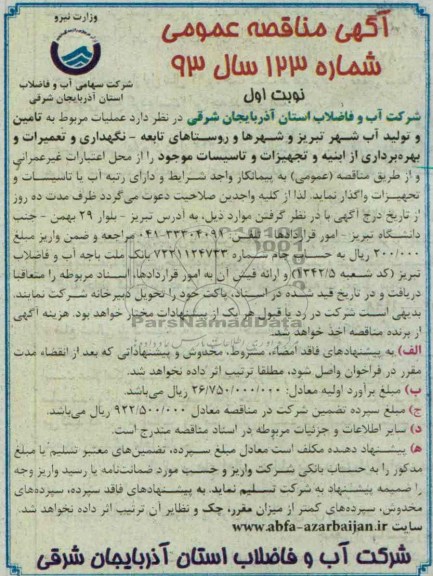 آگهی مناقصه عمومی
شماره ۱۲۳ سال ۹۳
نوبت اول
وزارت نیرو
شرکت سهامی آب و فاضلاب
استان آذربایجان شرقی
شرکت آب و فاضلاب استان آذربایجان شرقی در نظر دارد عملیات مربوط به تامین
و تولید آب شهر تبریز و شهرها و روستاهای تابعه - نگهداری و تعمیرات و
بهره‌برداری از ابنیه و تجهیزات و تاسیسات موجود را از محل اعتبارات غیرعمرانی
و از طریق مناقصه (عمومی) به پیمانکار واجد شرایط و دارای رتبه آب یا تاسیسات و
تجهیزات واگذار نماید. لذا از کلیه واجدین صلاحیت دعوت می‌گردد ظرف مدت ده روز
از تاریخ درج آگهی با در نظر گرفتن موارد ذیل، به آدرس تبریز - بلوار ۲۹ بهمن - جنب
دانشگاه تبریز - امور قراردادها - تلفن ۳۳۳۰۴۰۹۱-۰۴۱ مراجعه و ضمن واریز مبلغ
۲۰۰/۰۰۰ ریال به حساب جام شماره ۷۲۲۱۱۲۴۷۳۳ بانک ملت باجه آب و فاضلاب
تبریز (کد شعبه ۱۳۴۲/۵) و ارائه فیش آن به امور قراردادها، اسناد مربوطه را متعاقبا
دریافت و در تاریخ قید شده در اسناد، پاکت خود را تحویل دبیرخانه شرکت نمایند.
بدیهی است شرکت در رد یا قبول هر یک از پیشنهادات مختار خواهد بود. هزینه آگهی
از برنده مناقصه اخذ خواهد شد.
الف) به پیشنهادهای فاقد امضاء، مشروط، مخدوش و پیشنهاداتی که بعد از انقضاء مدت
مقرر در فراخوان واصل شود، مطلقا ترتیب اثر داده نخواهد شد.
ب) مبلغ برآورد اولیه معادل: ۲۶/۷۵۰/۰۰۰/۰۰۰ ریال می‌باشد.
ج) مبلغ سپرده تضمین شرکت در مناقصه معادل ۹۲۲/۵۰۰/۰۰۰ ریال می‌باشد.
د) سایر اطلاعات و جزئیات مربوطه در اسناد مناقصه مندرج است.
ه) پیشنهاد دهنده مکلف است معادل مبلغ سپرده، تضمین‌های معتبر تسلیم یا مبلغ
مذکور را به حساب بانکی شرکت واریز و حسب مورد ضمانت‌نامه یا رسید واریز وجه
را ضمیمه پیشنهاد به شرکت تسلیم نماید. به پیشنهادهای فاقد سپرده، سپرده‌های
مخدوش، سپرده‌های کمتر از میزان مقرر، چک و نظایر آن ترتیب اثر داده نخواهد شد.
سایت www.abfa-azarbaijan.ir
شرکت آب و فاضلاب استان آذربایجان شرقی
ParsNamadData